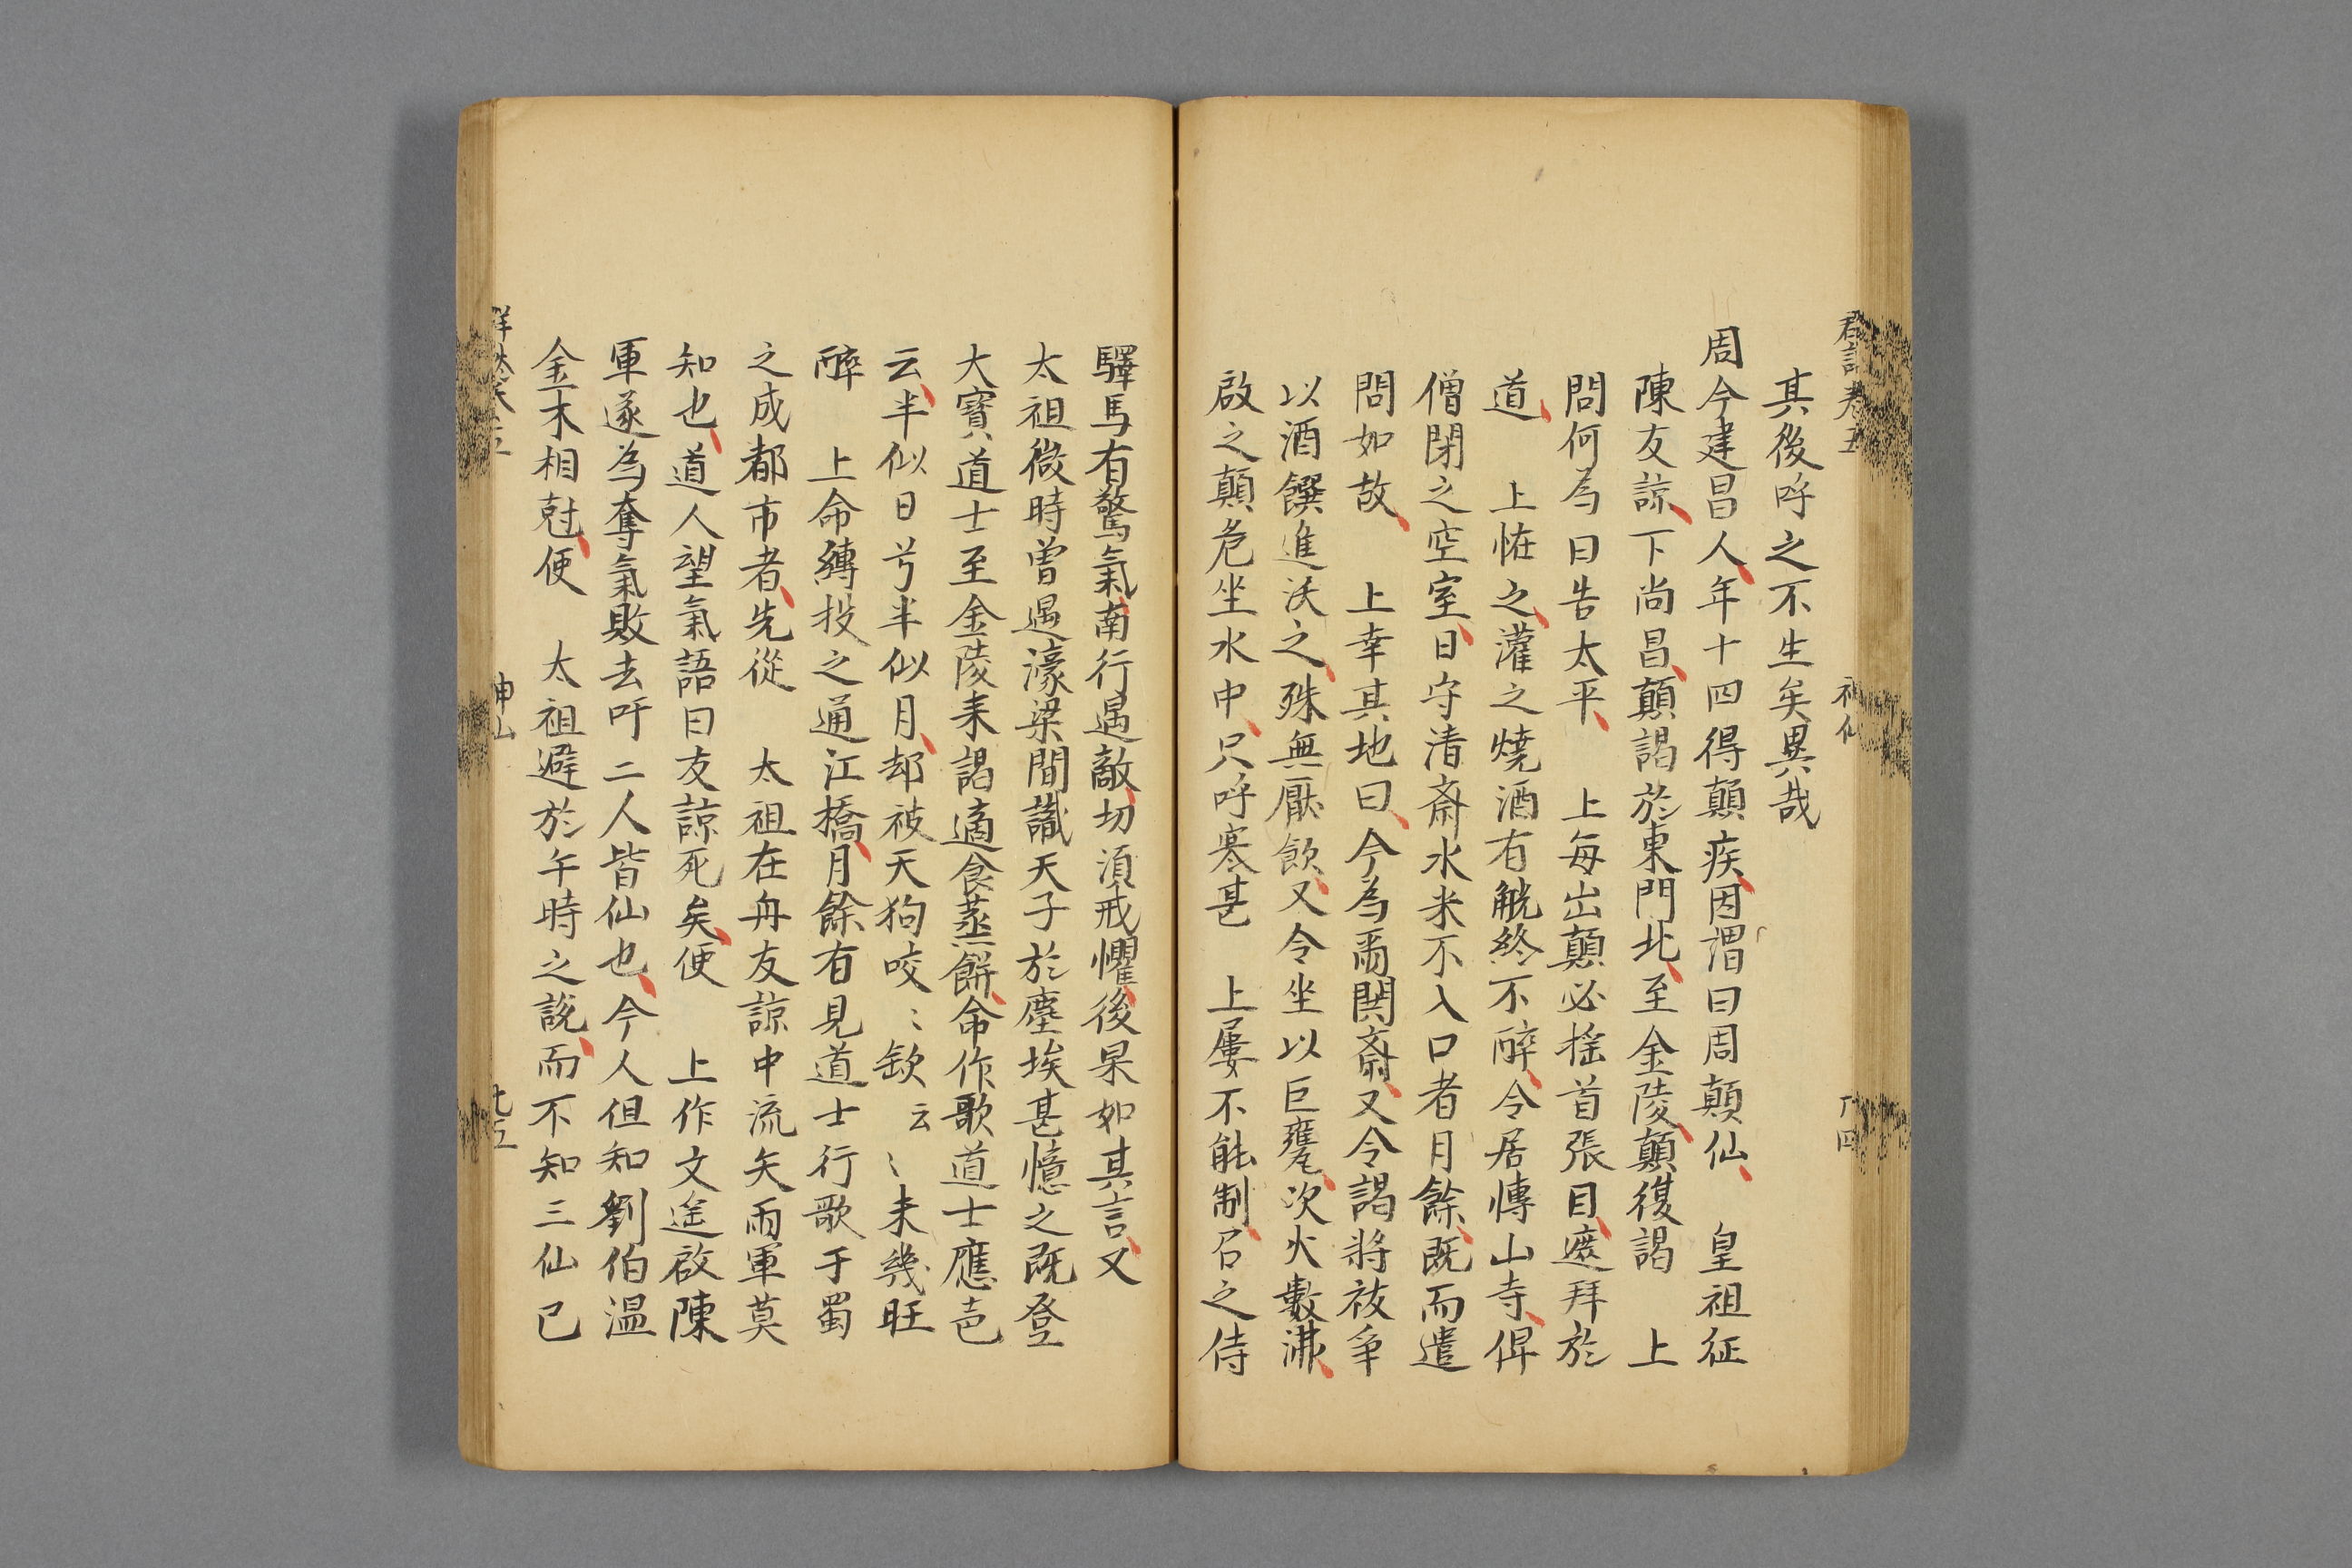 其後呼之不生矣異哉
周今建昌人年十四得顛疾因謂曰周顛仙　皇祖征
陳友諒下尚昌顛謁於東門北至金陵顛復謁　上
問何為曰告太平　上每出顛必搖首張目遮拜於
道　上恠之灌之燒酒有觥終不醉令居慱山寺俾
僧閉之空室日守清齋水米不入口者月餘既而遣
問如故　上幸其地曰今為爾開齋又令謁將校爭
以酒饌進沃之殊無厭飲又令坐以巨甕次火數沸
啟之顛危坐水中只呼寒甚　上屢不能制召之侍
驛馬有驚氣南行遇敵切須戒懼後果如其言又
太祖微時曾遇濠梁間識天子於塵埃甚憶之既登
大寶道士至金陵来謁適食蒸餅命作歌道士應声
云半似日兮半似月却被天狗咬〻缺云〻未幾旺
醉　上命縛投之通江橋月餘有見道士行歌于蜀
之成都市者先從　太祖在舟友諒中流矢兩軍莫
知也道人望氣語曰友諒死矣便　上作文遥啟陳
軍遂為奪氣敗去吁二人皆仙也今人但知劉伯温
金木相尅便　太祖避於午時之說而不知三仙已